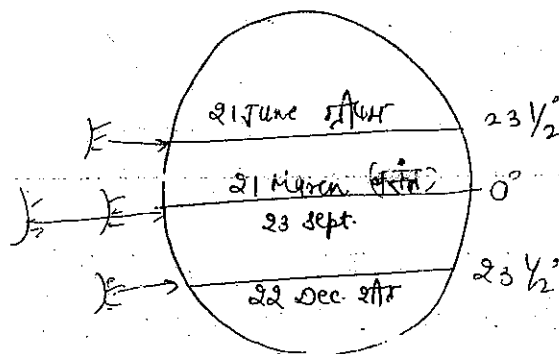 21 June ग्रीष्म 23 1/2°
21 March (वसंत) 0°
23 sept.
22 Dec. शीत 23 1/2°